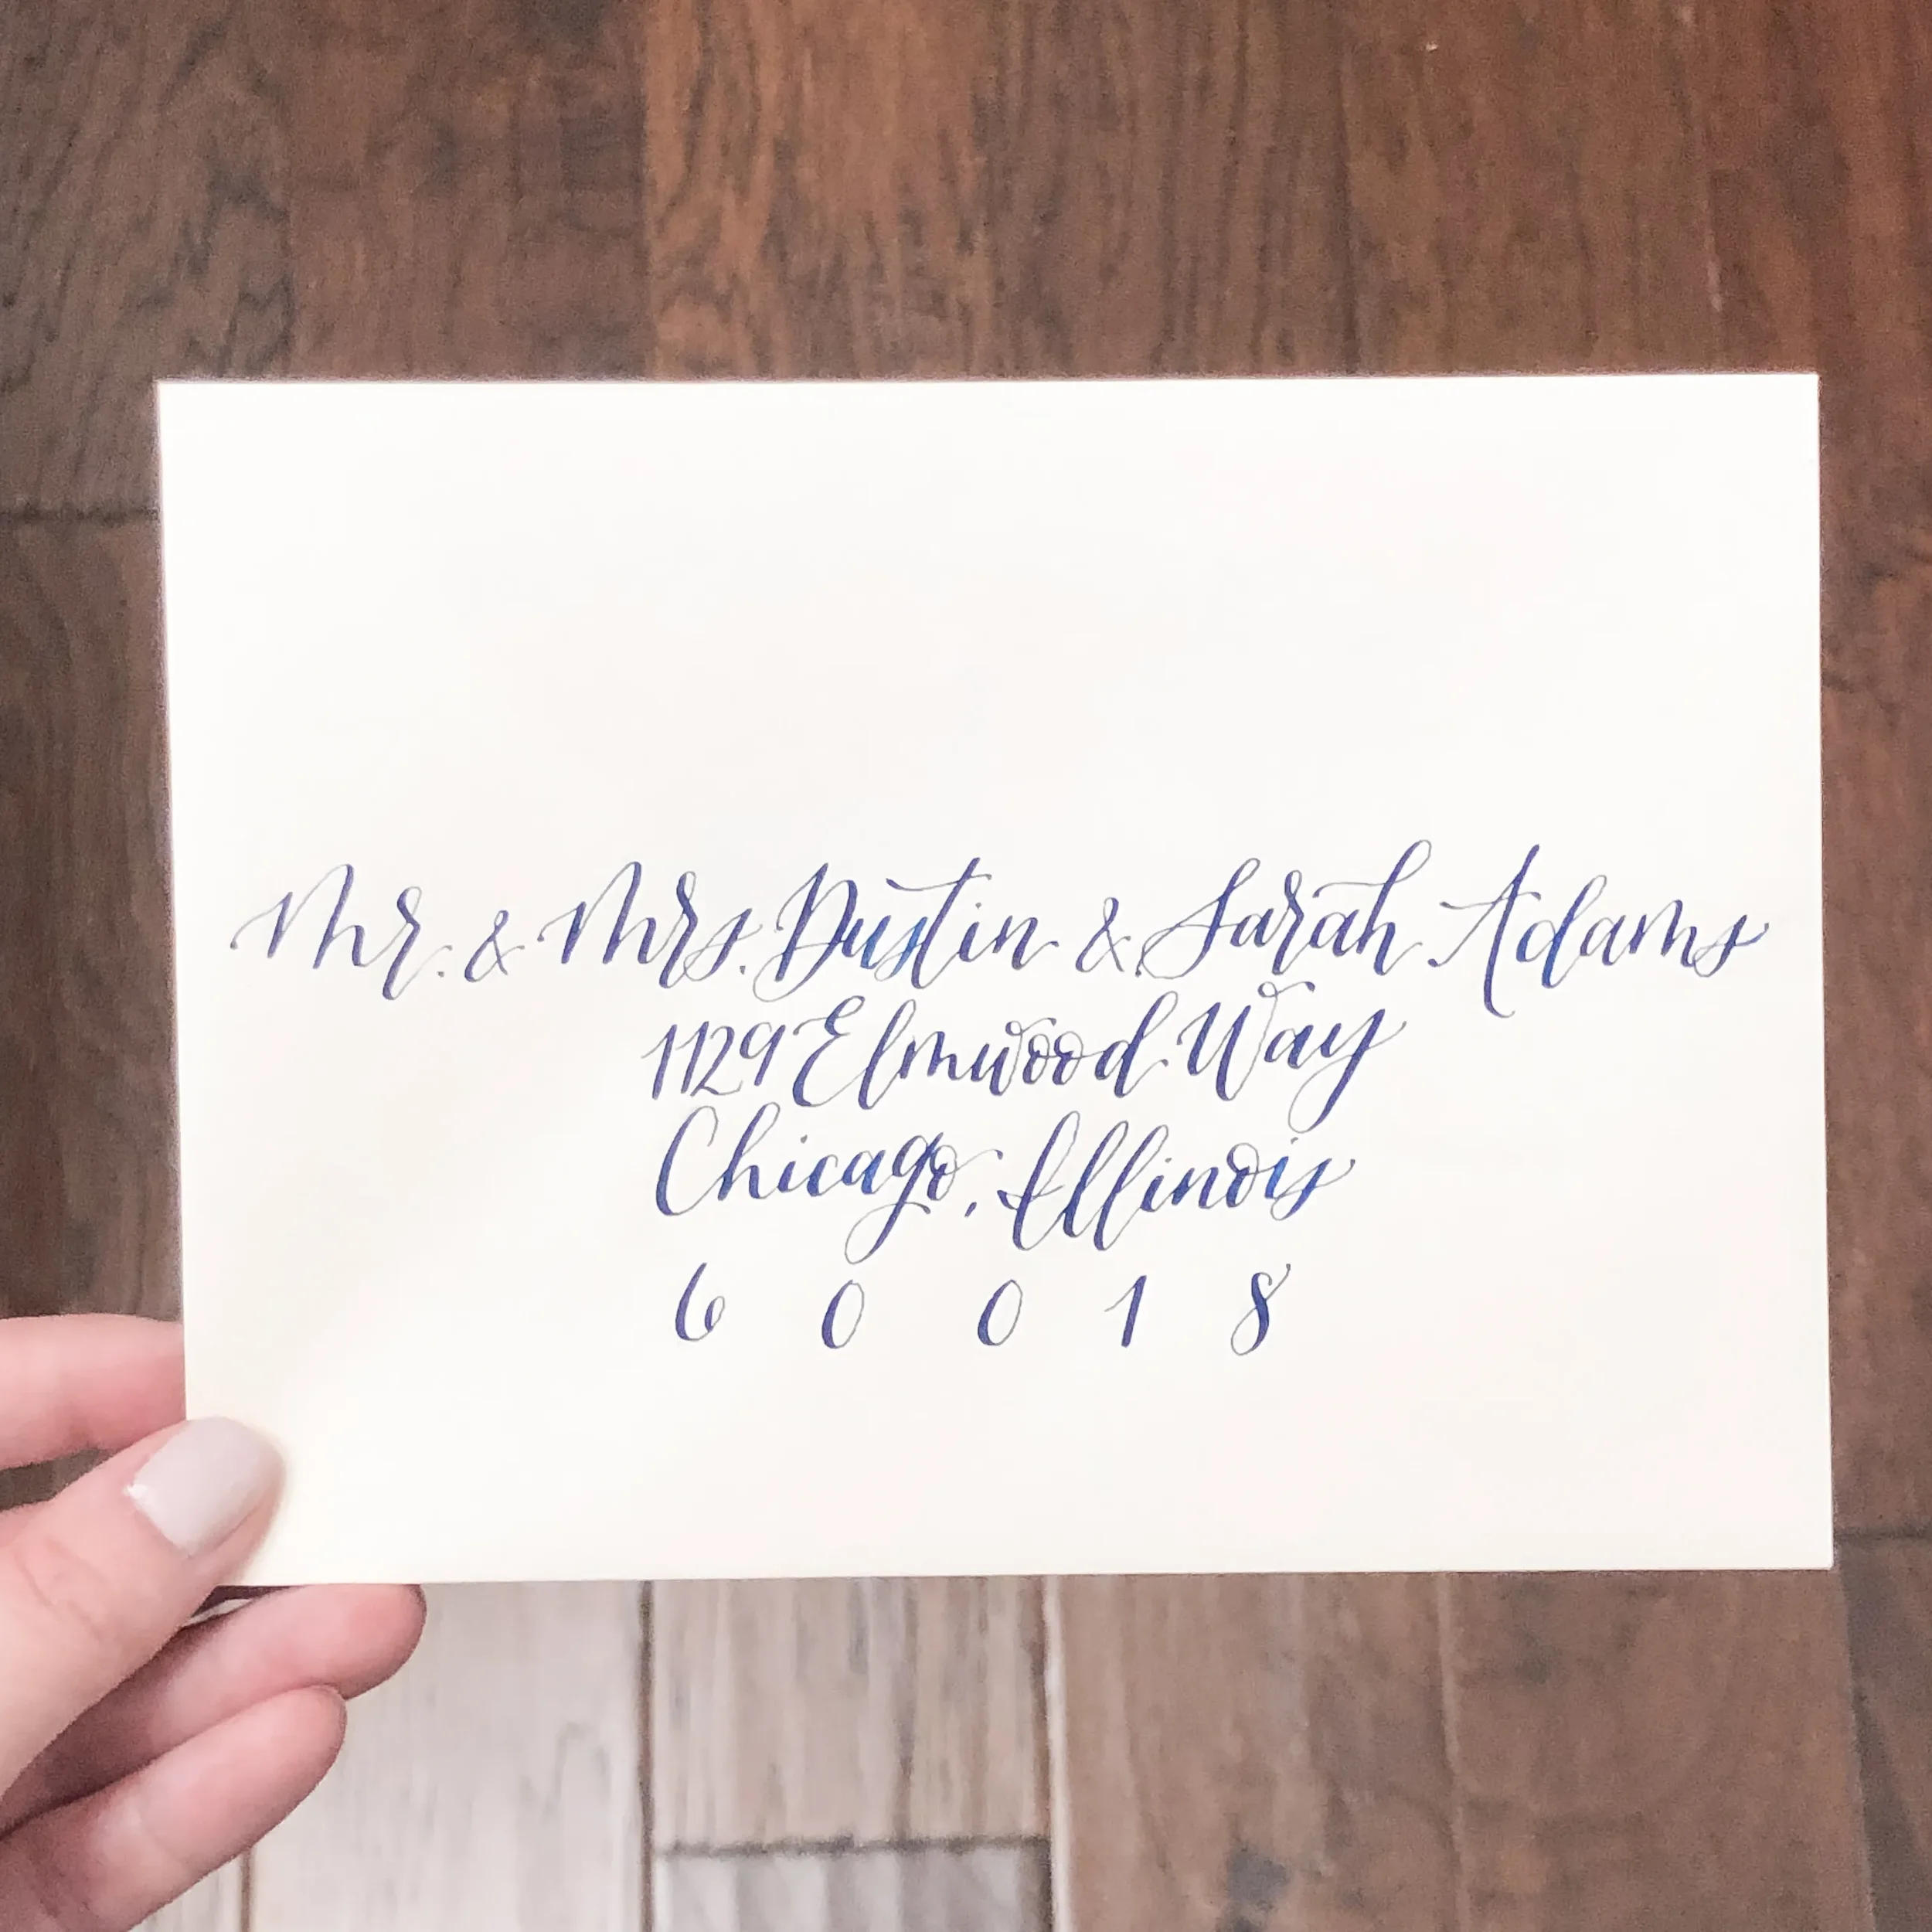 Mr. & Mrs. Dustin & Sarah Adams
1129 Elmwood Way
Chicago, Illinois
6 0 0 1 8